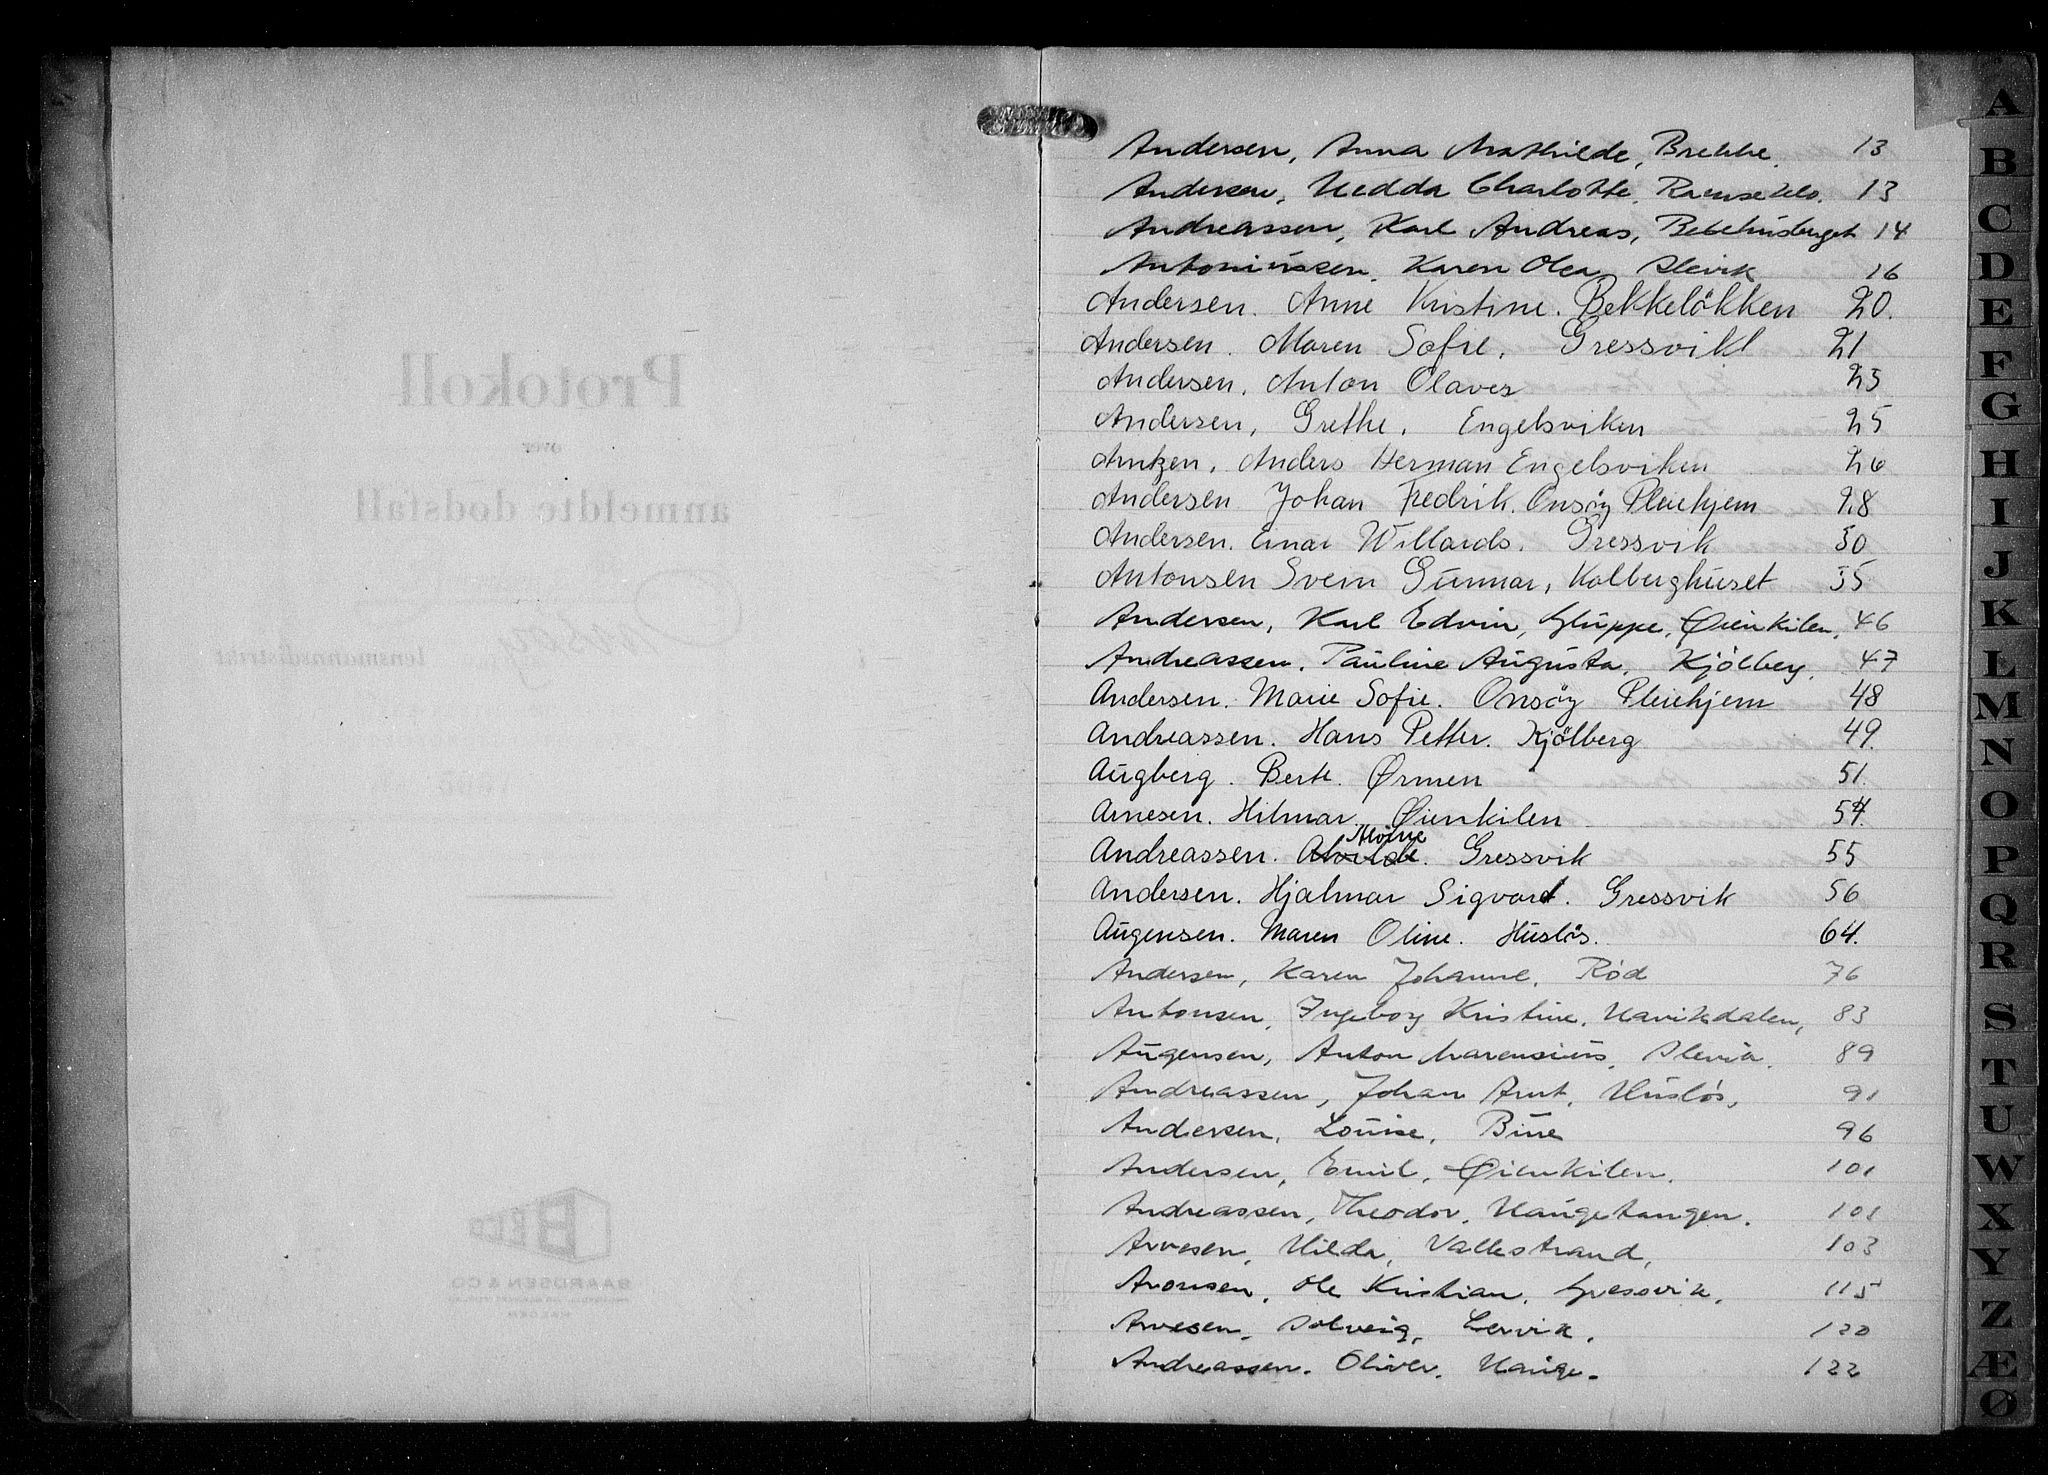 Protokoll
over
anmeldte dødsfall
Onsøy
lensmannsdistrikt
BAARDSEN & CO
HALDEN
Andersen, Anna Mathilde, Brekke. 13
Andersen, Hedda Charlotte, Ramseklo. 13
Andreassen, Karl Andreas, 14
Antoniussen, Karen Olea, Slevik 16
Andersen. Anne Kristine. Bekkeløkken 20.
Andersen. Maren Sofie. Gressvik 21
Andersen. Anton Olaves 23
Andersen, Grethe. Engelsviken 25
Arntzen. Anders Herman Engelsviken 26
Andersen Johan Fredrik. Onsöy Pleiehjem 28
Andersen. Einar Willards. Gressvik 30
Antonsen Svein Gunnar, Kolberghuset 35
Andersen, Karl Edvin, Gluppe, Øienkilen, 46
Andreassen. Pauline Augusta, Kjölberg. 47
Andersen. Marie Sofie. Onsöy Pleiehjem 48
Andreassen. Hans Petter. Kjölberg 49.
Augberg. Berte. Ørmen 51.
Arnesen. Hilmar. Øienkilen 54.
Alvine
Andreassen. Alvilde. Gressvik 55
Andersen. Hjalmar Sigvard. Gressvik 56
Augensen. Maren Oline. Huslös. 64.
Andersen, Karen Johanne. Rød 76
Antonsen, Ingeborg Kristine. Navikdalen, 83
Augensen, Anton Marensius, Slevik. 89
Andreassen, Johan Arnt, Husløs, 91
Andersen, Louise, Bure 96
Andersen, Emil, Øienkilen. 101
Andreassen, Theodor, Haugetangen. 101
Arvesen, Hilda, Vallestrand, 103
Aronsen, Ole Kristian, Gressvik, 115
Arvesen, Solveig, Lervik. 120
Andreassen. Oliver. Hauge. 122
A
B
C
D
E
F
G
H
I
J
K
L
M
N
O
P
Q
R
S
T
U
W
X
Y
Z
Æ
Ø